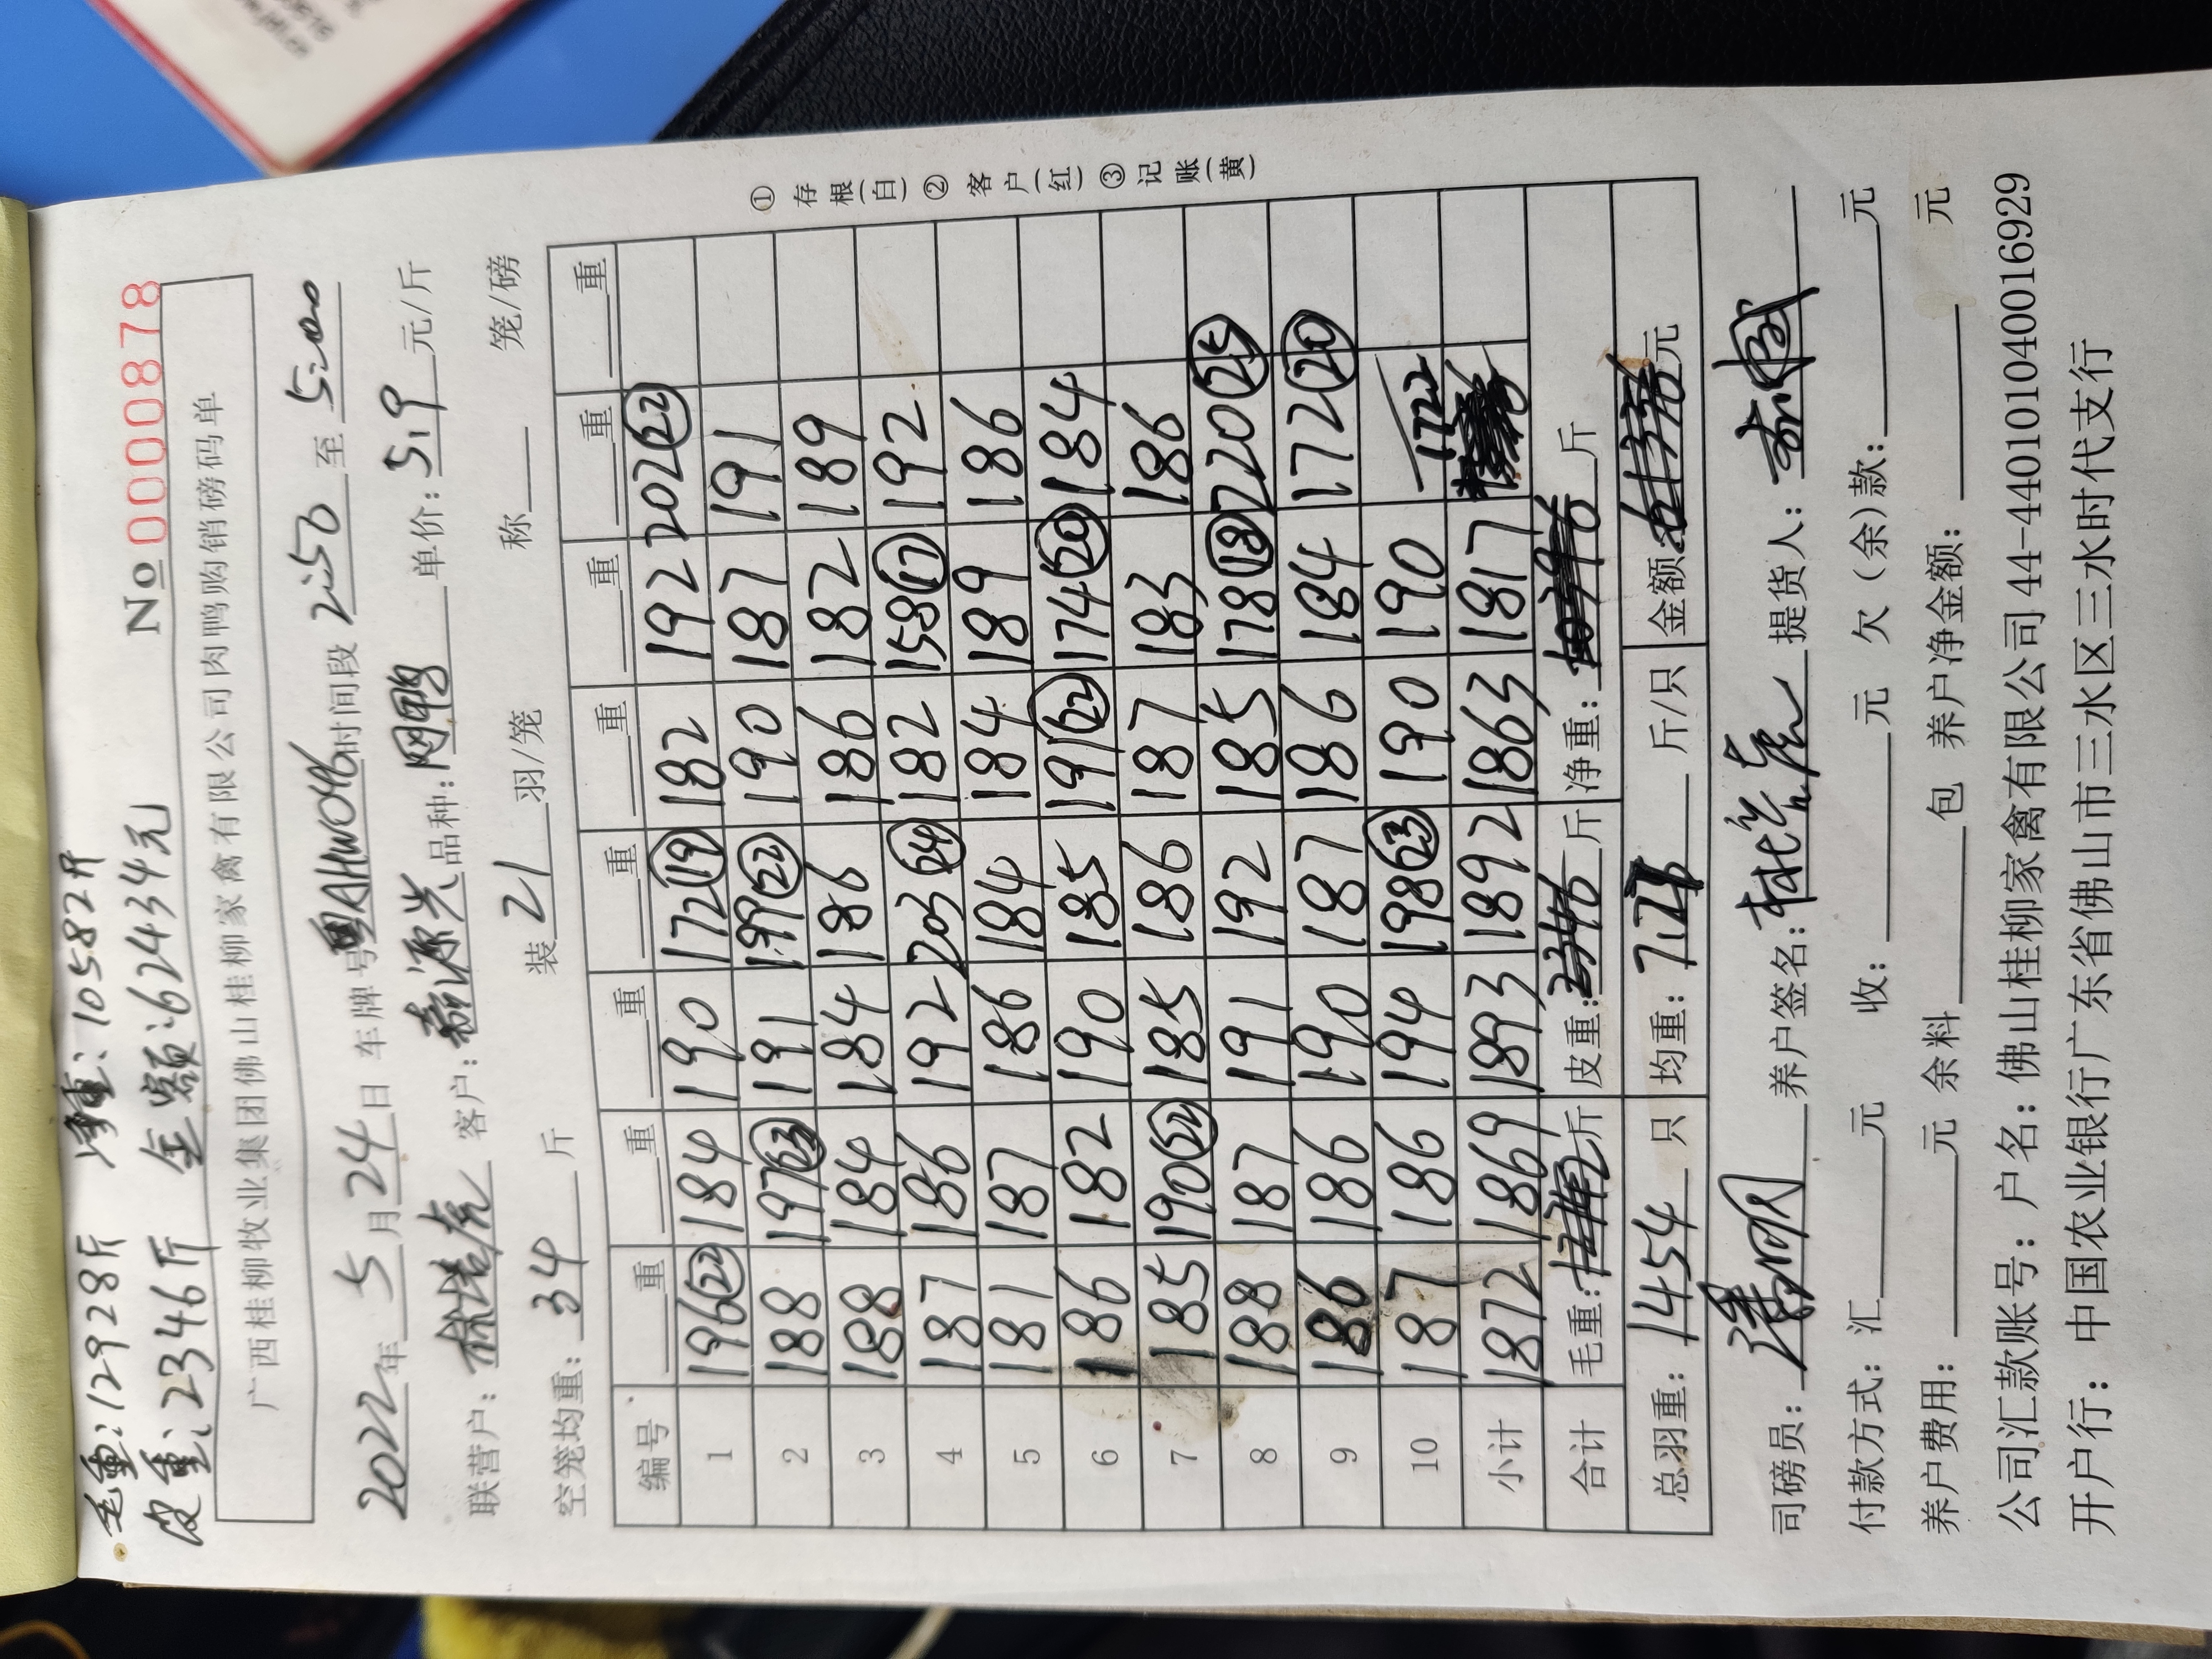 毛重:12928斤 净重:10582斤
皮重:2346斤 金额:62434元
No 0000878
广西桂柳牧业集团佛山桂柳家禽有限公司肉鸭购销磅码单
2022年5月24日 车牌号粤AHW046时间段2:50至5:00
联营户: 客户:源兴品种:网鸭 单价:5.9元/斤
空笼均重:34斤 装21羽/笼 称 笼/磅
编号 重 重 重 重 重 重 重 重
1 196(22) 184 190 172(19) 182 192 202(22)
2 188 197(23) 191 199(22) 190 187 191
3 188 184 184 186 186 182 189
4 187 186 192 203(24) 182 158(17) 192
5 181 187 186 184 184 189 186
6 186 182 190 185 191(22) 174(20) 184
7 185 190(22) 185 186 187 183 186
8 188 187 191 192 185 178(18) 220(25)
9 186 186 190 187 186 184 172(20)
10 187 186 194 198(23) 190 190
小计 1872 1869 1893 1892 1863 1817 1722
合计 毛重: 斤 皮重:2346斤 净重: 斤
总羽重:1454只 均重:7.28斤/只 金额: 元
① 存根(白) ② 客户(红) ③ 记账(黄)
司磅员: 养户签名: 提货人:
付款方式:汇 元 收: 元 欠(余)款: 元
养户费用: 元 余料 包 养户净金额: 元
公司汇款账号:户名:佛山桂柳家禽有限公司44-440101040016929
开户行:中国农业银行广东省佛山市三水区三水时代支行